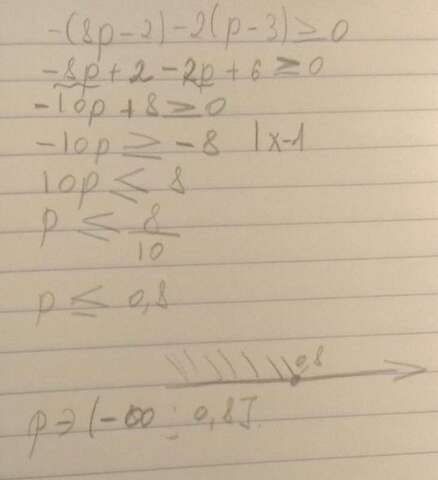 -(8p-2)-2(p-3)≥0
-8p+2-2p+6≥0
-10p+8≥0
-10p≥-8 |x-1
10p≤8
p≤8/10
p≤0,8
0,8
p→(-∞;0,8]